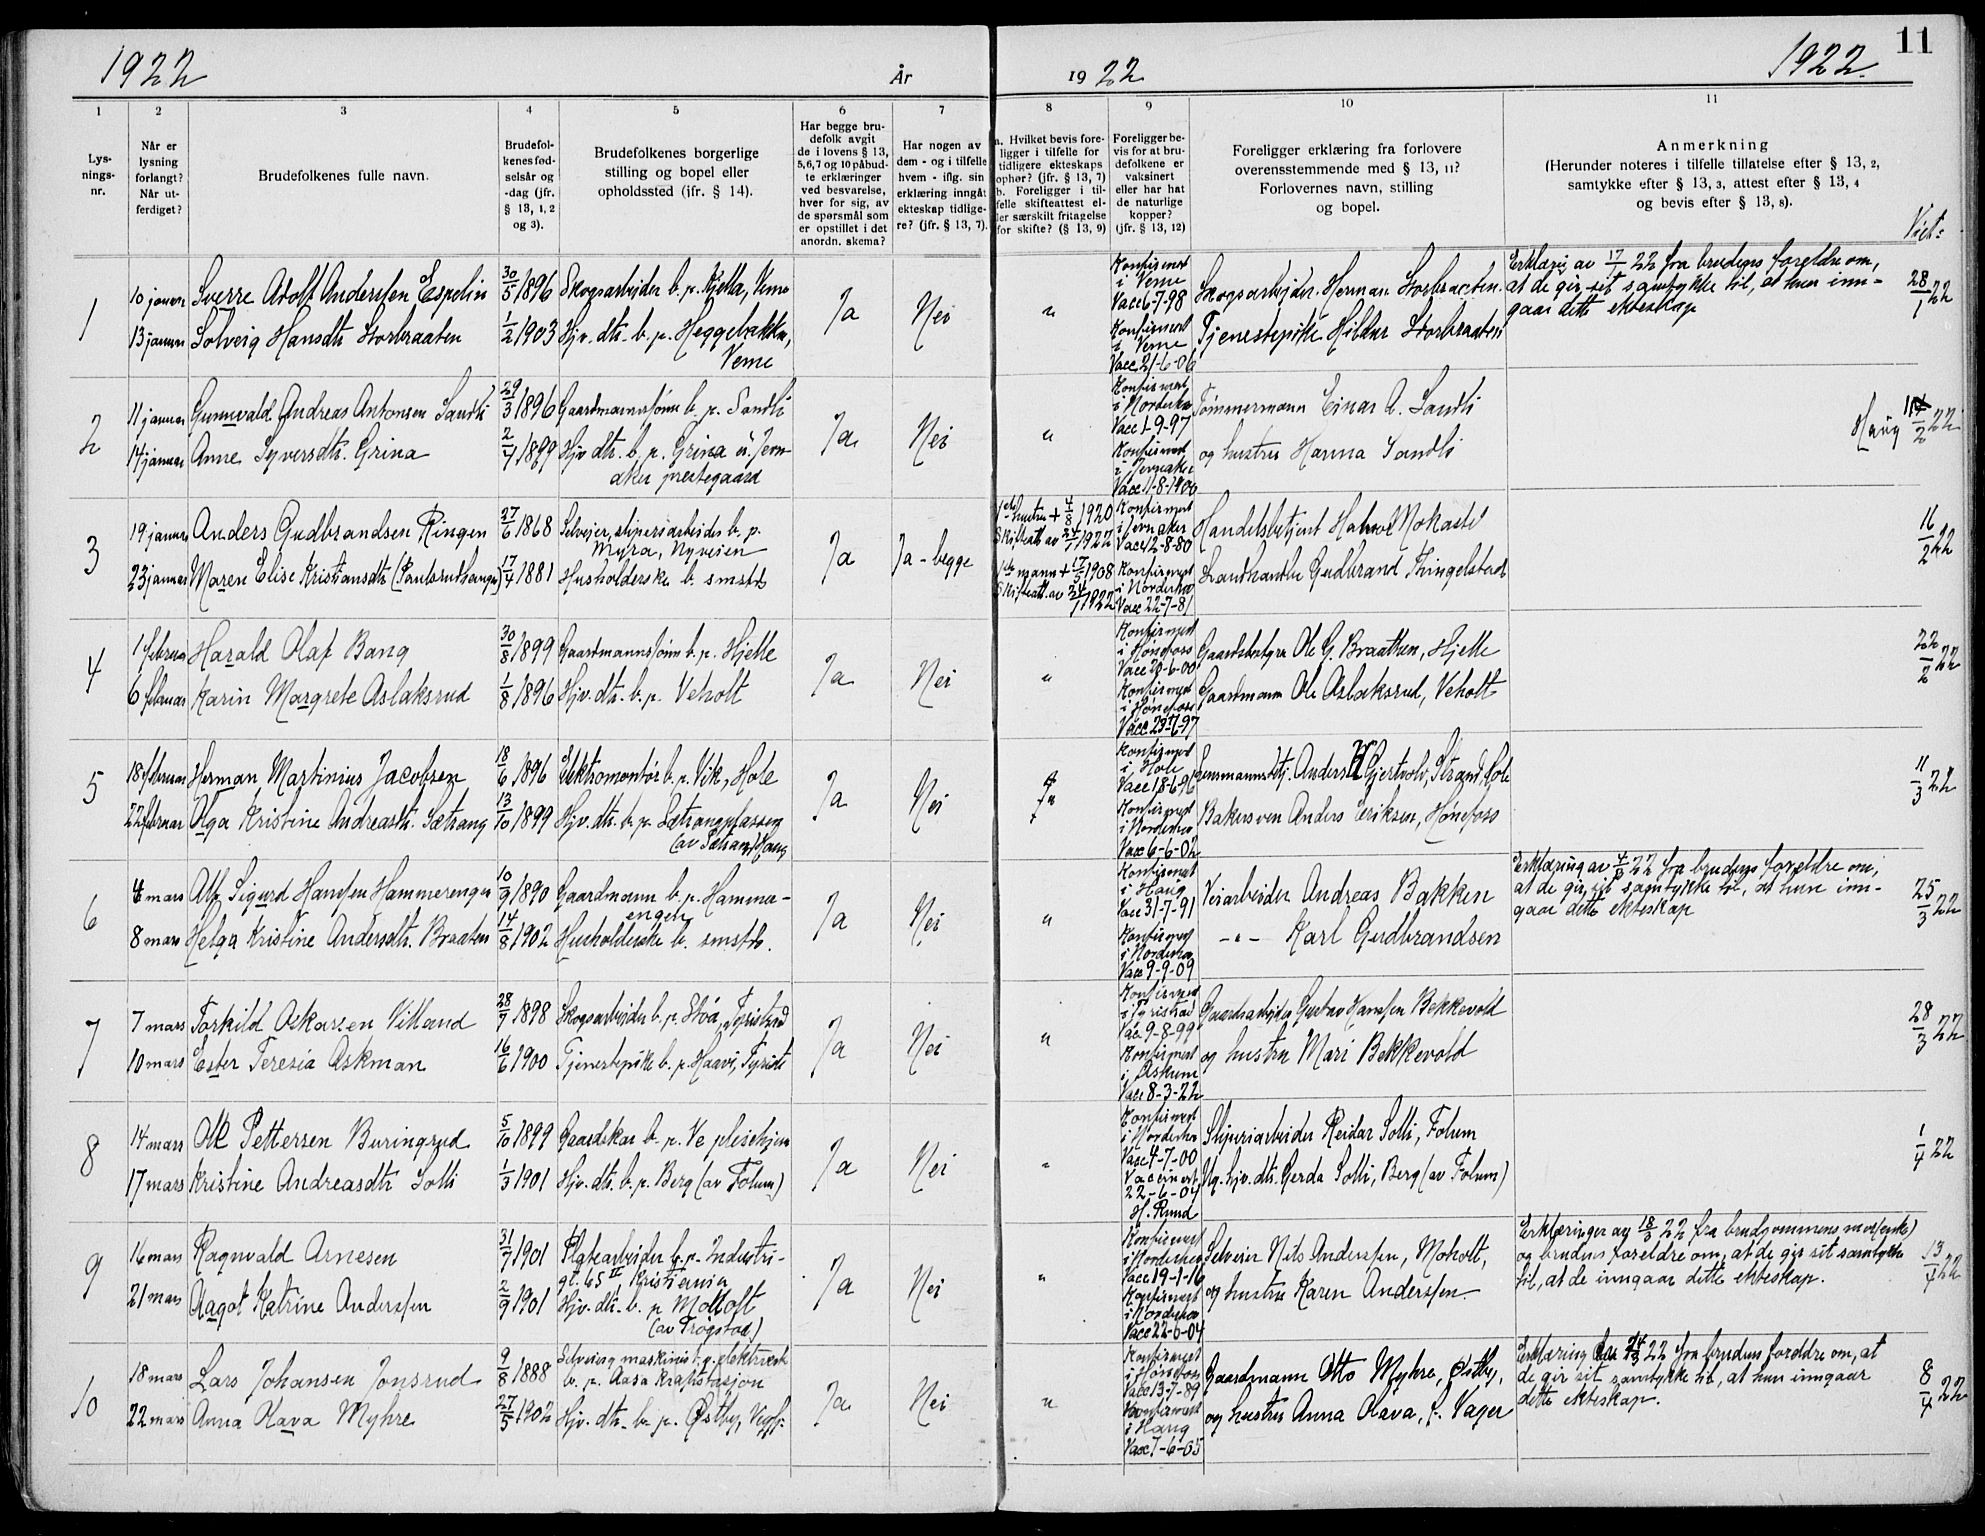 1922 År 1922 1922 11
1 2 3 4 5 6 7 8 9 10 11
Lysningsnr.
Når er lysning forlangt? Når utferdiget?
Brudefolkenes fulle navn.
Brudefolkenes fødselsår og -dag (jfr. § 13, 1, 2 og 3).
Brudefolkenes borgerlige stilling og bopel eller opholdssted (jfr. § 14).
Har begge brudefolk avgit de i lovens § 13, 5, 6, 7 og 10 påbudte erklæringer ved besvarelse, hver for sig, av de spørsmål som er opstillet i det anordn. skema?
Har nogen av dem - og i tilfelle hvem - iflg. sin erklæring inngåt ekteskap tidligere? (jfr. § 13, 7).
a. Hvilket bevis foreligger i tilfelle for tidligere ekteskaps ophør? (jfr. § 13, 7)
b. Foreligger i tilfelle skifteattest eller særskilt fritagelse for skifte? (§ 13, 9)
Foreligger bevis for at brudefolkene er vaksinert eller har hat de naturlige kopper? (jfr. § 13, 12)
Foreligger erklæring fra forlovere overensstemmende med § 13, 11? Forlovernes navn, stilling og bopel.
Anmerkning
(Herunder noteres i tilfelle tillatelse efter § 13, 2, samtykke efter § 13, 3, attest efter § 13, 4 og bevis efter § 13, 8).
Viet:
1
10 januar Sverre Adolf Anderssen Espelin 30/5 1896 Skogsarbeider b. p. Kjella, Veme
13 januar Solveig Hansdtr Storbraaten 1/2 1903 Hjv. dtr. b. p. Heggebakka, Veme
Ja Nei "
Konfirmert i Veme Vacc 6-7-98
Konfirmert i Veme Vacc 21-6-06
Skogsarbeider Herman Storbraaten.
Tjenestepike Hildur Storbraaten
Erklæring av 17/1 22 fra brudens foreldre om,
at de gir sit samtykke til, at hun inn-
gaar dette ekteskap
28/1 22
2
11 januar Gunnvald Andreas Antonsen Sandli 29/3 1896 Gaardmannssønn b. p. Sandli
14 januar Anne Syversdtr. Grina 2/7 1899 Hjv. dtr. b. p. Grina i Jevnaker prestegaard
Ja Nei "
Konfirmert i Norderhov Vacc 1-9-97
Konfirmert i Jevnaker Vacc 11-8-1900
Tømmermann Einar A. Sandli
og hustru Hanna Sandli
Haug 2 22
3
19 januar Anders Gudbrandsen Ringen 27/6 1868 Selveier, sliperiarbeider b. p. Myra, Nyveien
23 januar Maren Elise Kristiansdtr 17/4 1881 Husholderske b. smstds
Ja Ja - begge
hustru + 4/8 1920 Skifteatt. av 24/1 1922
mann + 17/5 1908 Skifteatt. av 24/1 1922
Konfirmert i Jevnaker Vacc 12-8-80
Konfirmert i Norderhov Vacc 22-7-81
Handelsbetjent
Landhandler Gudbrand Thingelstad
16/2 22
4
1 februar Harald Olaf Bang 30/8 1899 Gaardmannssønn b. p. Hjelle
6 februar Karin Margrete Aslaksrud 1/8 1896 Hjv. dtr. b. p. Veholt
Ja Nei "
Konfirmert i Hønefoss Vacc 20-6-00
Konfirmert i Hønefoss Vacc 23-7-97
Gaardbestyrer Ole G. Braathen, Hjelle
Gaardmann Ole Aslaksrud, Veholt
22/2 22
5
18 februar Herman Martinius Jacobsen 18/6 1896 Elektromontør b. p. Vik, Hole
22 februar Olga Kristine Andreasdtr. Sætrang 13/10 1899 Hjv. dtr. b. p. Sætrangplassen Haug
Ja Nei "
Konfirmert i Hole Vacc 18-6-96
Konfirmert i Norderhov Vacc 6-6-02
Lensmannsbetj. Anders Gjertvolv, Strand, Hole
Bakersven Anders Eriksen, Hønefoss
11/3 22
6
4 mars Alf Sigurd Hanssen Hammerengen 10/9 1890 Gaardmann b. p. Hammerengen
8 mars Helga Kristine Andersdtr. Braaten 14/8 1902 Husholderske b. smstds.
Ja Nei "
Konfirmert i Haug Vacc 31-7-91
Konfirmert i Norderhov Vacc 9-9-09
Veiarbeider Andreas Bakken
-"- Karl Gudbrandsen
Erklæring av 4/3 22 fra brudens foreldre om,
at de gir sit samtykke til, at hun inn-
gaar dette ekteskap
25/3 22
7
7 mars Torkild Oskarsen Villand 28/7 1898 Skogsarbeider b. p. Stóa, Tyristrand
10 mars Ester Teresia Askman 16/6 1900 Tjenestepike b. p. Haavi, Tyristr
Ja Nei "
Konfirmert i Tyristrand Vac 9-8-99
Konfirmert i Askum Vacc 8-3-22
Gaardsarbeider Gustav Hanssen Bekkevold
og hustru Mari Bekkevold
28/3 22
8
14 mars Ole Pettersen Buringrud 5/10 1899 Gaardskar b. p. Ve pleiehjem
17 mars Kristine Andreasdtr Solli 1/3 1901 Hjv. dtr. b. p. Berg (av Folum)
Ja Nei "
Konfirmert i Norderhov Vacc 4-7-00
Vaccinert 22-6-04 H. Rund
Sliperiarbeider Reidar Solli, Folum
Ug. hjv. dtr. Gerda Solli, Berg (av Folum)
1/4 22
9
16 mars Ragnvald Arnesen 31/7 1901 Platearbeider b. p. Industri-
gt. 65 II, Kristiania
21 mars Aagot Katrine Anderssen 2/9 1901 Hjv. dtr. b. p Moholt (av Trøgstad)
Ja Nei "
Konfirmert i Norderhov Vacc 19-1-16
Konfirmert i Norderhov Vacc 22-6-04
Selveier Nils Anderssen, Moholt,
og hustru Karen Anderssen.
Erklæringer av 18/3 22 fra brudgommens mor (enke)
og brudens foreldre om, at de gir sit samtykke
til, at de inngaar dette ekteskap.
13/4 22
10
18 mars Lars Johansen Jonsrud 9/8 1888 Selveier og maskinist
b. p. Aasa kraftstasjon
22 mars Anna Olava Myhre 27/5 1902 Hjv. dtr. b. p. Østby,
Ja Nei "
Konfirmert i Hønefoss Vacc 13-7-89
Konfirmert i Haug Vacc 7-6-05
Gaardmann Otto Myhre, Østby,
og hustru Anna Olava, f. Vager
Erklæring 22 fra brudens foreldre om, at
de gir sit samtykke til, at hun inngaar
dette ekteskap.
8/4 22